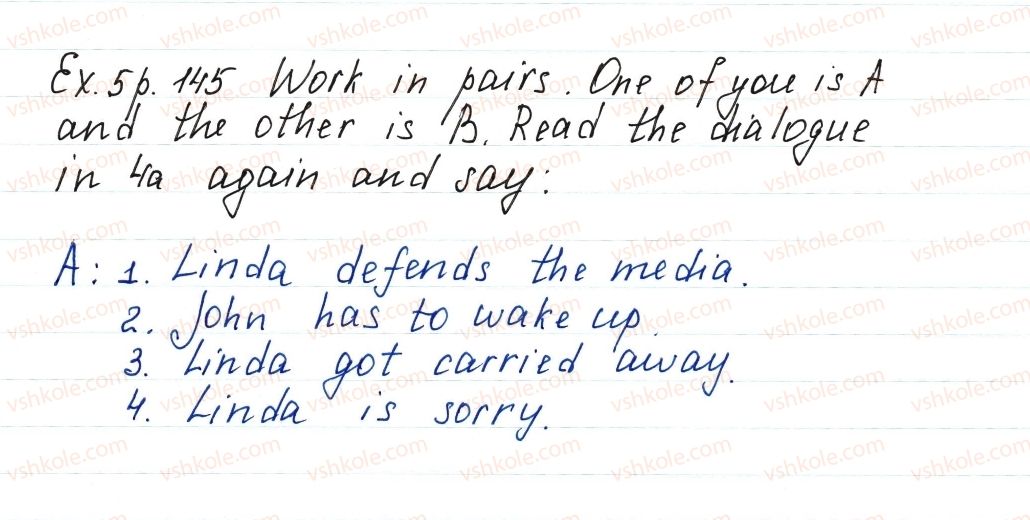 Ex. 5 p. 145 Work in pairs. One of you is A
and the other is B. Read the dialogue
in 4a again and say:
A: 1. Linda defends the media.
2. John has to wake up.
3. Linda got carried away.
4. Linda is sorry.